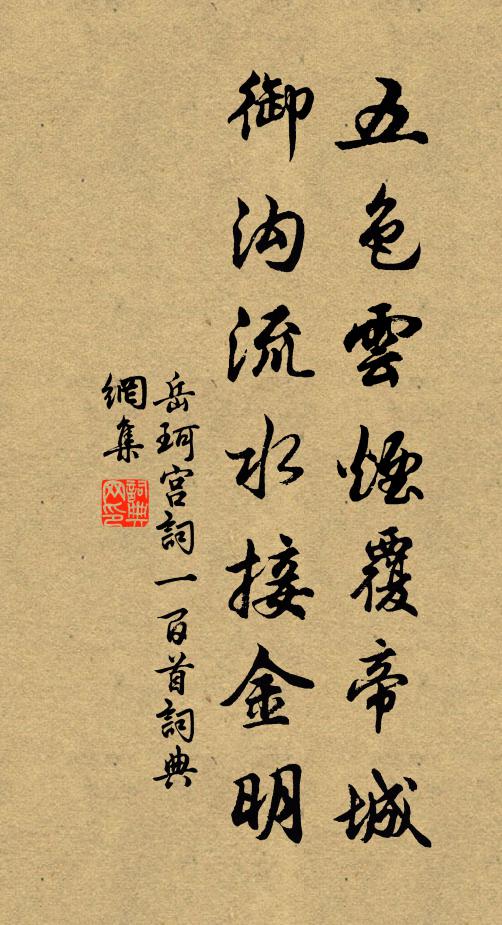 五色雲煙覆帝城
御沟流水接金明
岳珂宮詞一百首詞典
網集
詞典
网印